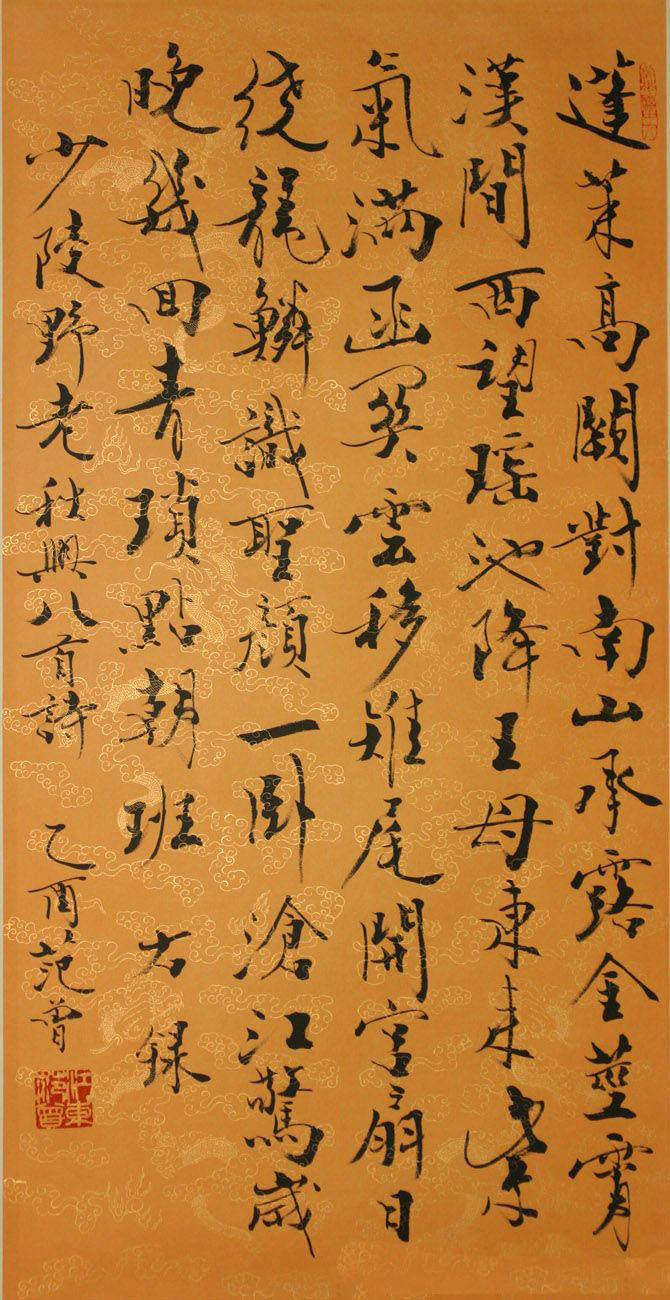 蓬莱高闕對南山承露金莖霄
漢間西望瑶池降王母東来紫
氣满函関雲移雉尾開宫扇日
绕龍鳞識聖顔一卧滄江驚歲
晚幾回青瑣點朝班 右録
少陵野老秋興八首詩 乙酉范曾
江東范曾